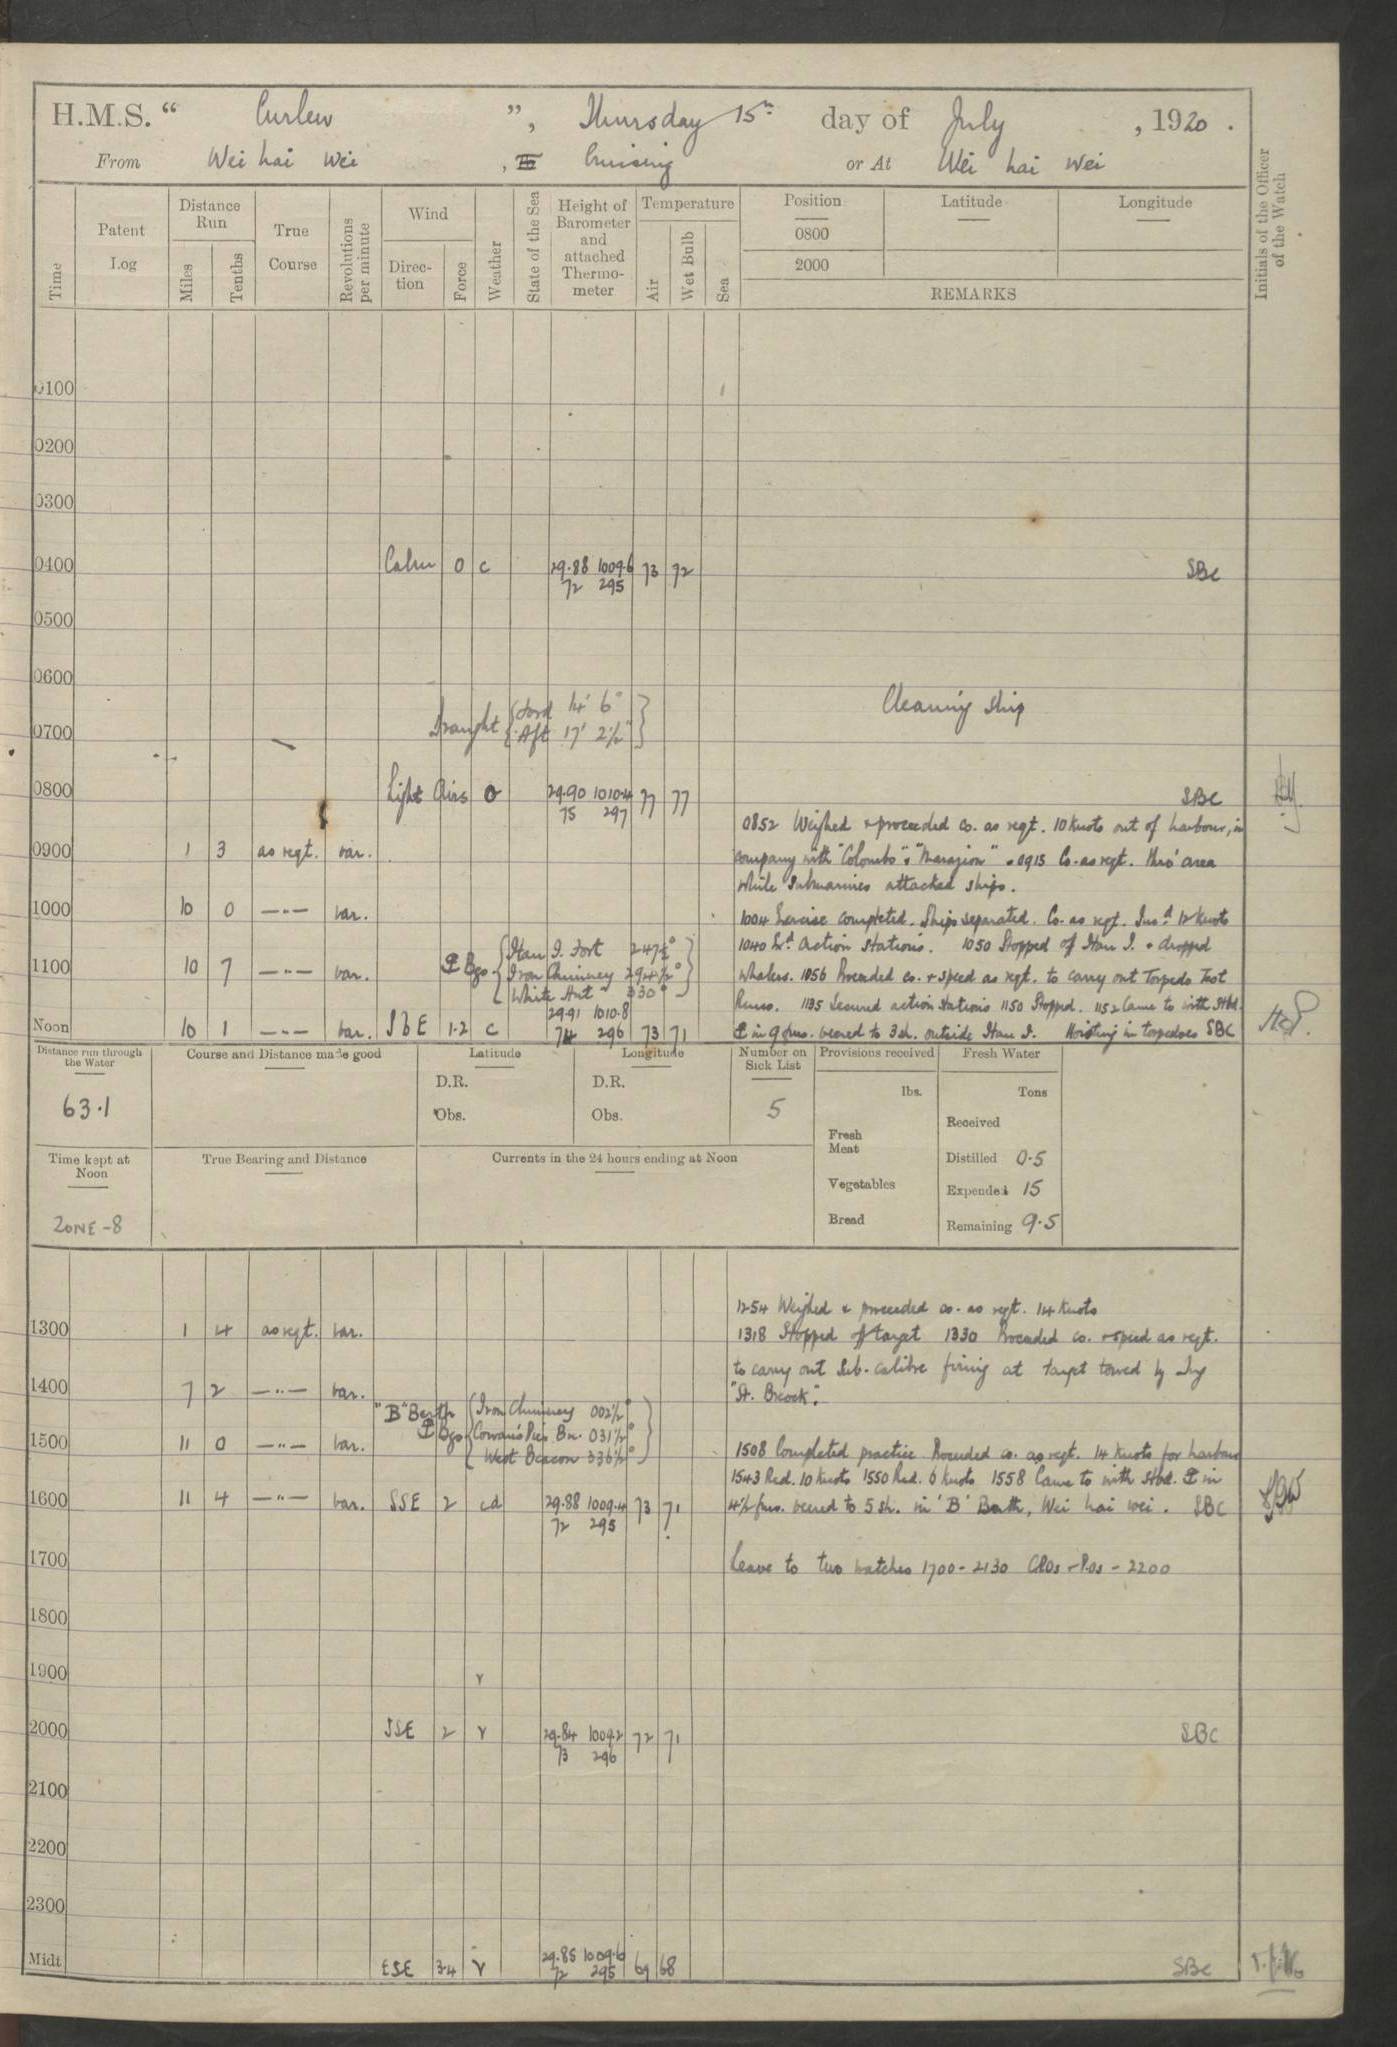 H.M.S. “ Curlew ”, Thursday 15th day of July , 1920 .
From Wei hai Wei , Cruising or At Wei hai wei
Time
Patent Log
Distance Run
Miles
Tenths
True Course
Revolutions per minute
Wind
Direction
Force
Weather
State of the Sea
Height of Barometer and attached Thermometer
Temperature
Air
Wet Bulb
Sea
Position
0800
2000
Latitude
Longitude
REMARKS
Initials of the Officer of the Watch
0100
0200
0300
0400 Calm 0 c 29.88 1009.6 73 72 SBC
72 295
0500
0600
Cleaning Ship
Draught { Ford 14' 6" }
{ Aft 17' 2½" }
0700
0800 Light Airs o 29.90 1010.4 77 77 SBC
75 297
0852 Weighed & proceeded co. as reqt. 10 knots out of harbour, in
0900 1 3 as reqt. var. company with "Colombo" & "Marazion". 0915 Co. as reqt. thro' area
while submarines attacked ships.
1000 10 0 —"— var. 1004 Exercise completed. Ships separated. Co. as reqt. Insd 12 knots
1040 Action Stations. 1050 Stopped off Itau I. & dropped
1100 10 7 —"— var. whalers. 1056 Proceeded co. & speed as reqt. to carry out Torpedo Test
Bgs { Itau I. Fort 247½°
Iron Chimney 294½°
White Hut 330° }
Runs. 1135 Secured action stations 1150 Stopped. 1152 Came to with Stbd.
29.91 1010.8
Noon 10 1 —"— var. SbE 1-2 c 74 296 73 71 in 9 fms. veered to 3 sh. outside Itau I. Hoisting in torpedoes SBC
Distance run through the Water
63.1
Course and Distance made good
Latitude
D.R.
Obs.
Longitude
D.R.
Obs.
Number on Sick List
5
Provisions received
lbs.
Fresh Meat
Vegetables
Bread
Fresh Water
Tons
Received
Distilled 0.5
Expended 15
Remaining 9.5
Time kept at Noon
ZONE -8
True Bearing and Distance
Currents in the 24 hours ending at Noon
1254 Weighed & proceeded co. as reqt. 14 knots
1300 1 4 as reqt. var. 1318 Stopped off target 1330 Proceeded co. & speed as reqt.
to carry out Sub-calibre firing at target towed by Tug
1400 7 2 —"— var. "St. Breock".
"B" Berth Bgs { Iron Chimney 002½°
Cowan's Pier Bn. 031½°
West Beacon 336½° }
1500 11 0 —"— var. 1508 Completed practice Proceeded co. as reqt. 14 knots for harbour
1543 Red. 10 knots 1550 Red. 6 knots 1558 Came to with Stbd. in
1600 11 4 —"— var. SSE 2 cd 29.88 1009.4 73 71 4½ fms. veered to 5 sh. in 'B' Berth, Wei hai wei. SBC
72 295
1700 Leave to two watches 1700 - 2130 CPOs & POs - 2200
1800
1900 r
2000 SSE 2 r 29.84 1009.2 72 71 SBC
73 296
2100
2200
2300
Midt ESE 3-4 r 29.85 1009.6 69 68 SBC
72 295